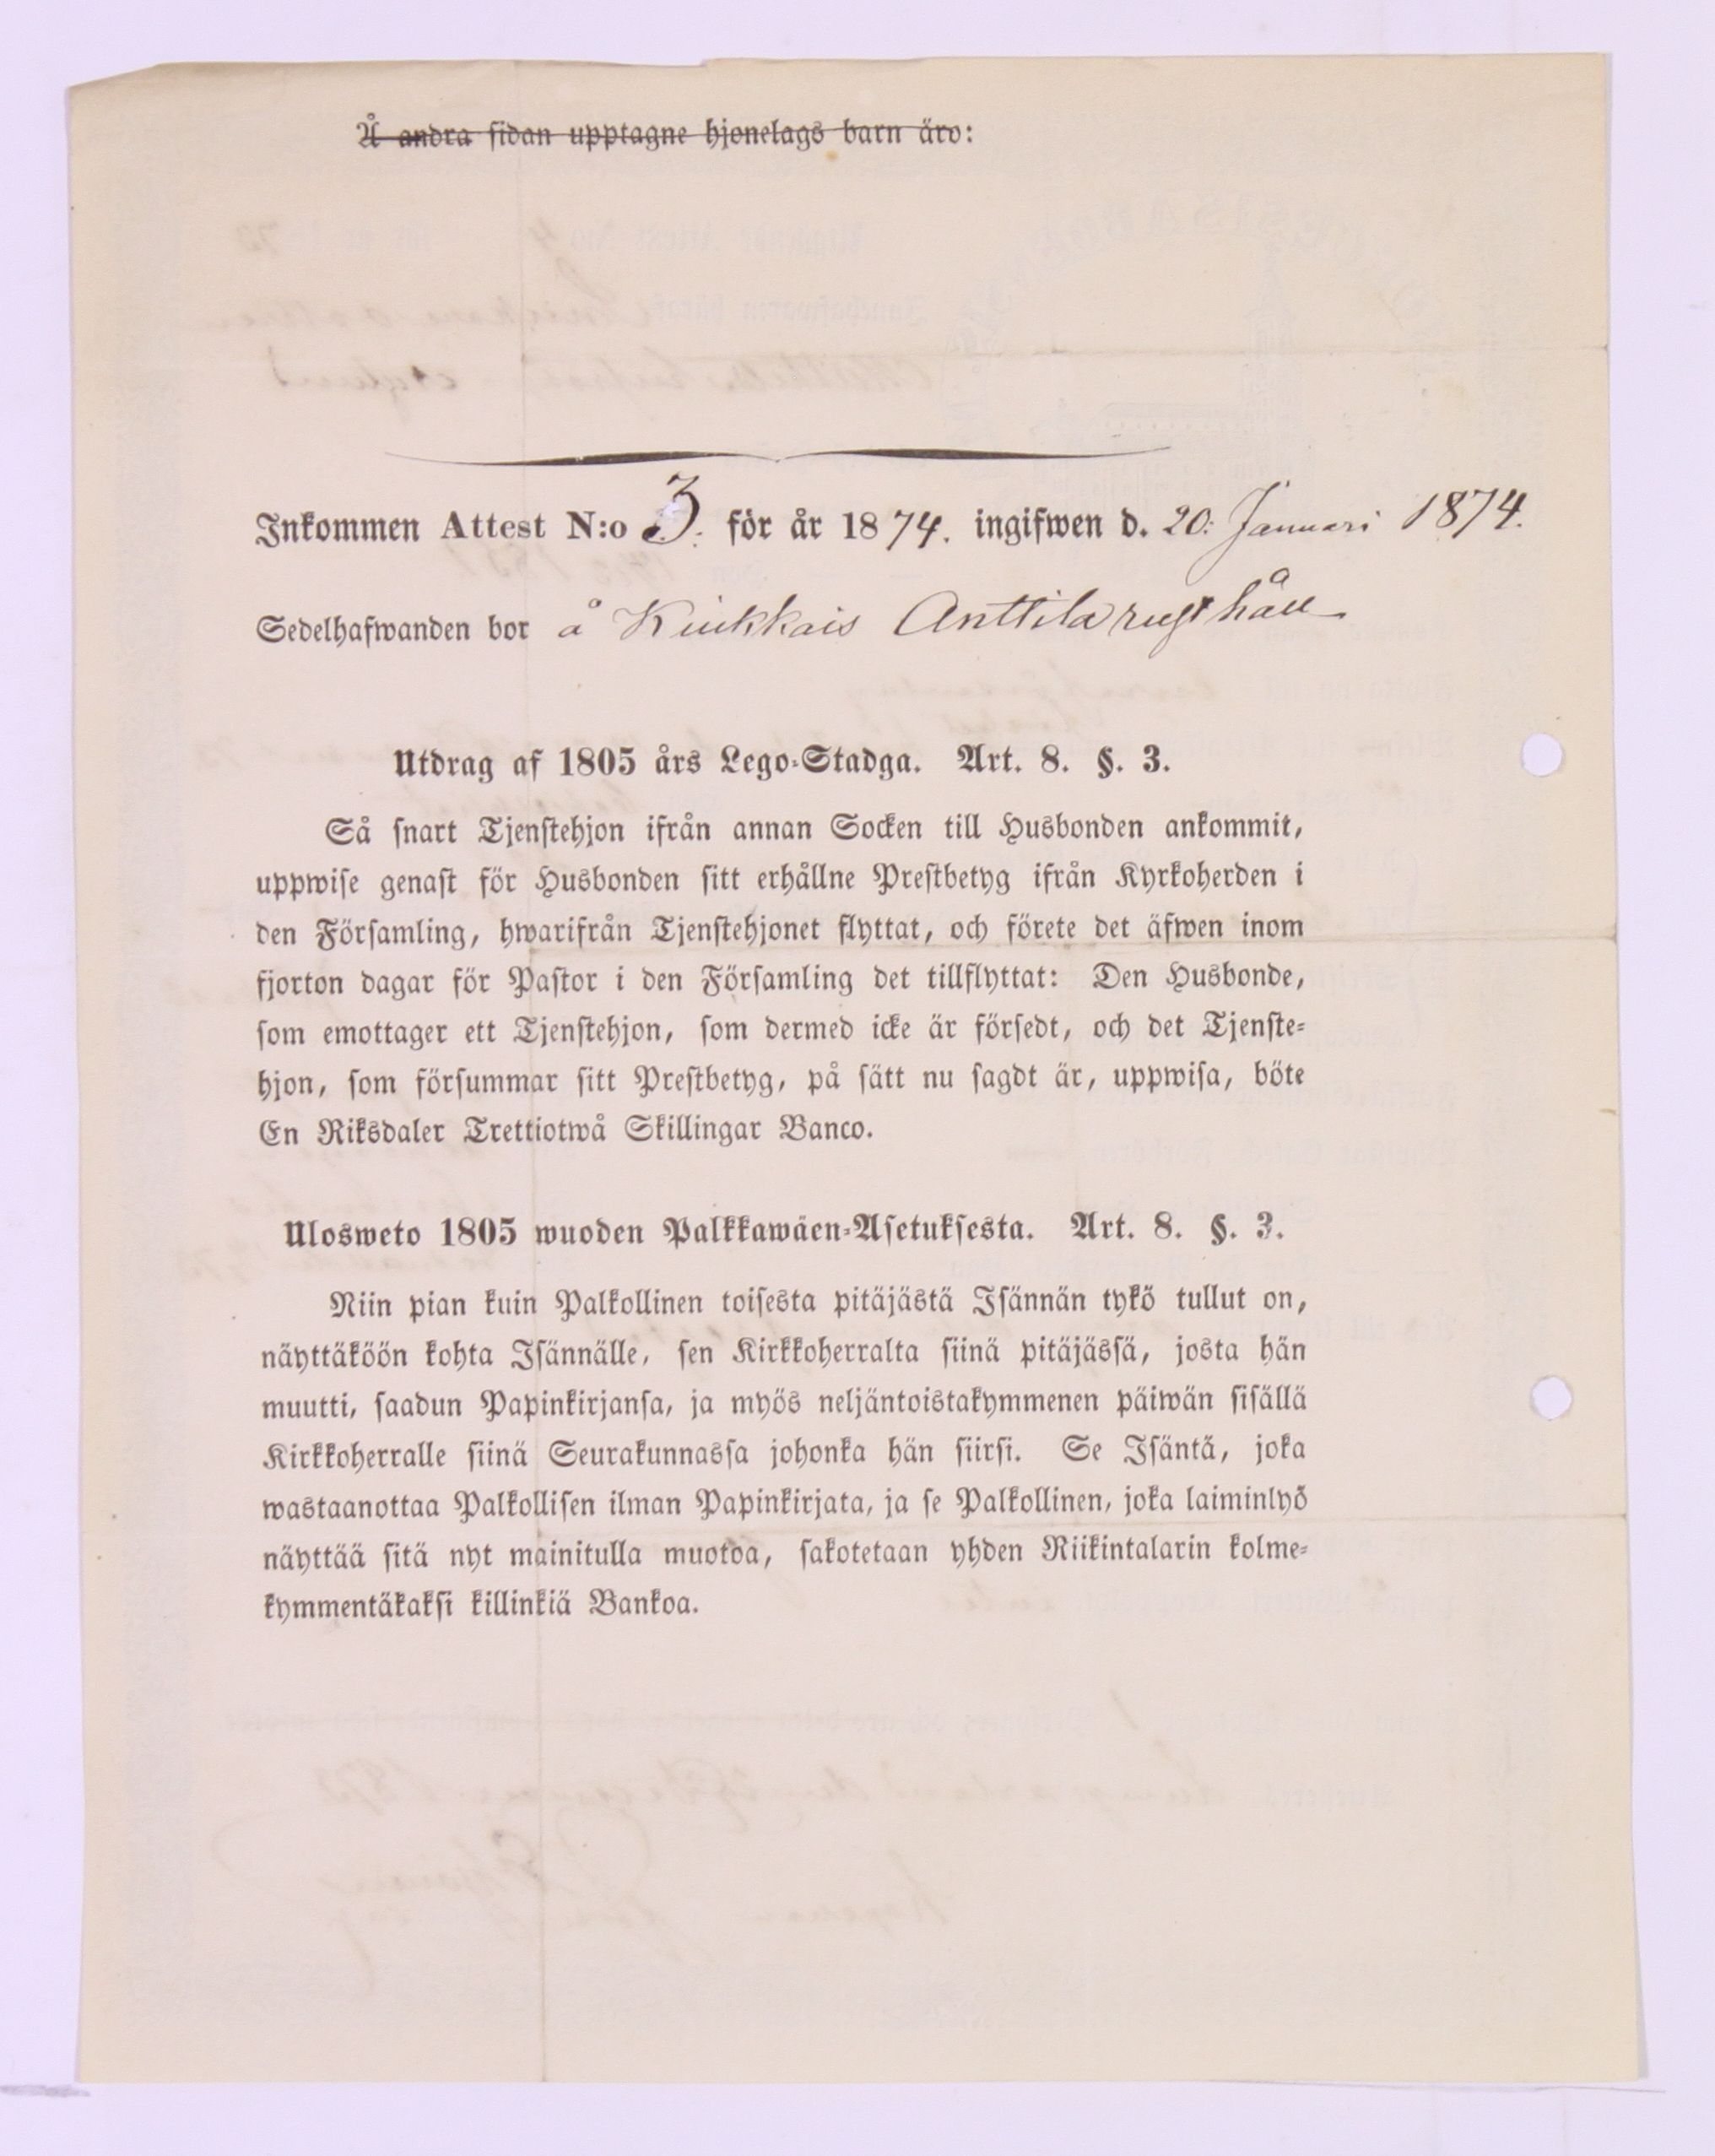 Å andra sidan upptagne hjonelags barn äro:
Inkommen Attest N:o 3. för år 1874. ingifwen d. 20: Januari 1874.
Sedelhafwanden bor å Kiukkais Anttila rusthåll
Utdrag af 1805 års Lego-Stadga. Art. 8. §. 3.
Så snart Tjenstehjon ifrån annan Socken till Husbonden ankommit,
uppwise genast för Husbonden sitt erhållne Prestbetyg ifrån Kyrkoherden i
den Församling, hwarifrån Tjenstehjonet flyttat, och förete det äfwen inom
fjorton dagar för Pastor i den Församling det tillflyttat: Den Husbonde,
som emottager ett Tjenstehjon, som dermed icke är försedt, och det Tjenste-
hjon, som försummar sitt Prestbetyg, på sätt nu sagdt är, uppwisa, böte
En Riksdaler Trettiotwå Skillingar Banco.
Ulosweto 1805 wuoden Palkkawäen-Asetuksesta. Art. 8. §. 3.
Niin pian kuin Palkollinen toisesta pitäjästä Isännän tykö tullut on,
näyttäköön kohta Isännälle, sen Kirkkoherralta siinä pitäjässä, josta hän
muutti, saadun Papinkirjansa, ja myös neljäntoistakymmenen päiwän sisällä
Kirkkoherralle siinä Seurakunnassa johonka hän siirsi. Se Isäntä, joka
wastaanottaa Palkollisen ilman Papinkirjata, ja se Palkollinen, joka laiminlyö
näyttää sitä nyt mainitulla muotoa, sakotetaan yhden Riikintalarin kolme-
kymmentäkaksi killinkiä Bankoa.